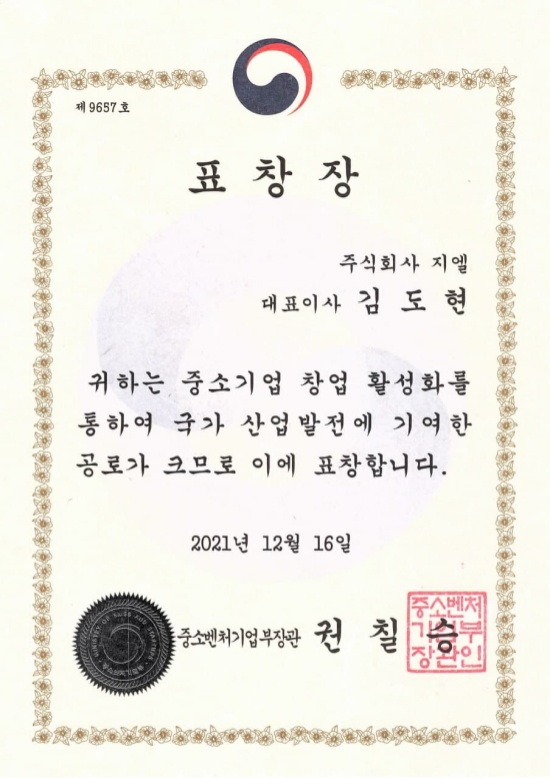 제 9657 호
표 창 장
주식회사 지엘
대표이사 김 도 현
귀하는 중소기업 창업 활성화를
통하여 국가 산업발전에 기여한
공로가 크므로 이에 표창합니다.
2021년 12월 16일
중소벤처기업부장관 권 칠 승
중소벤처
기업부
장관인